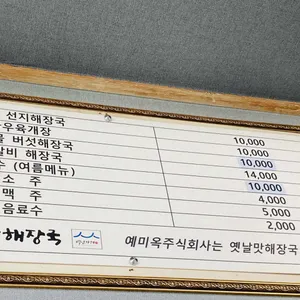 선지해장국 10,000
우육개장 10,000
버섯해장국 10,000
비 해장국 14,000
(여름메뉴) 10,000
소 주 4,000
맥 주 5,000
음료수 2,000
해장국 예미옥주식회사는 옛날맛해장국